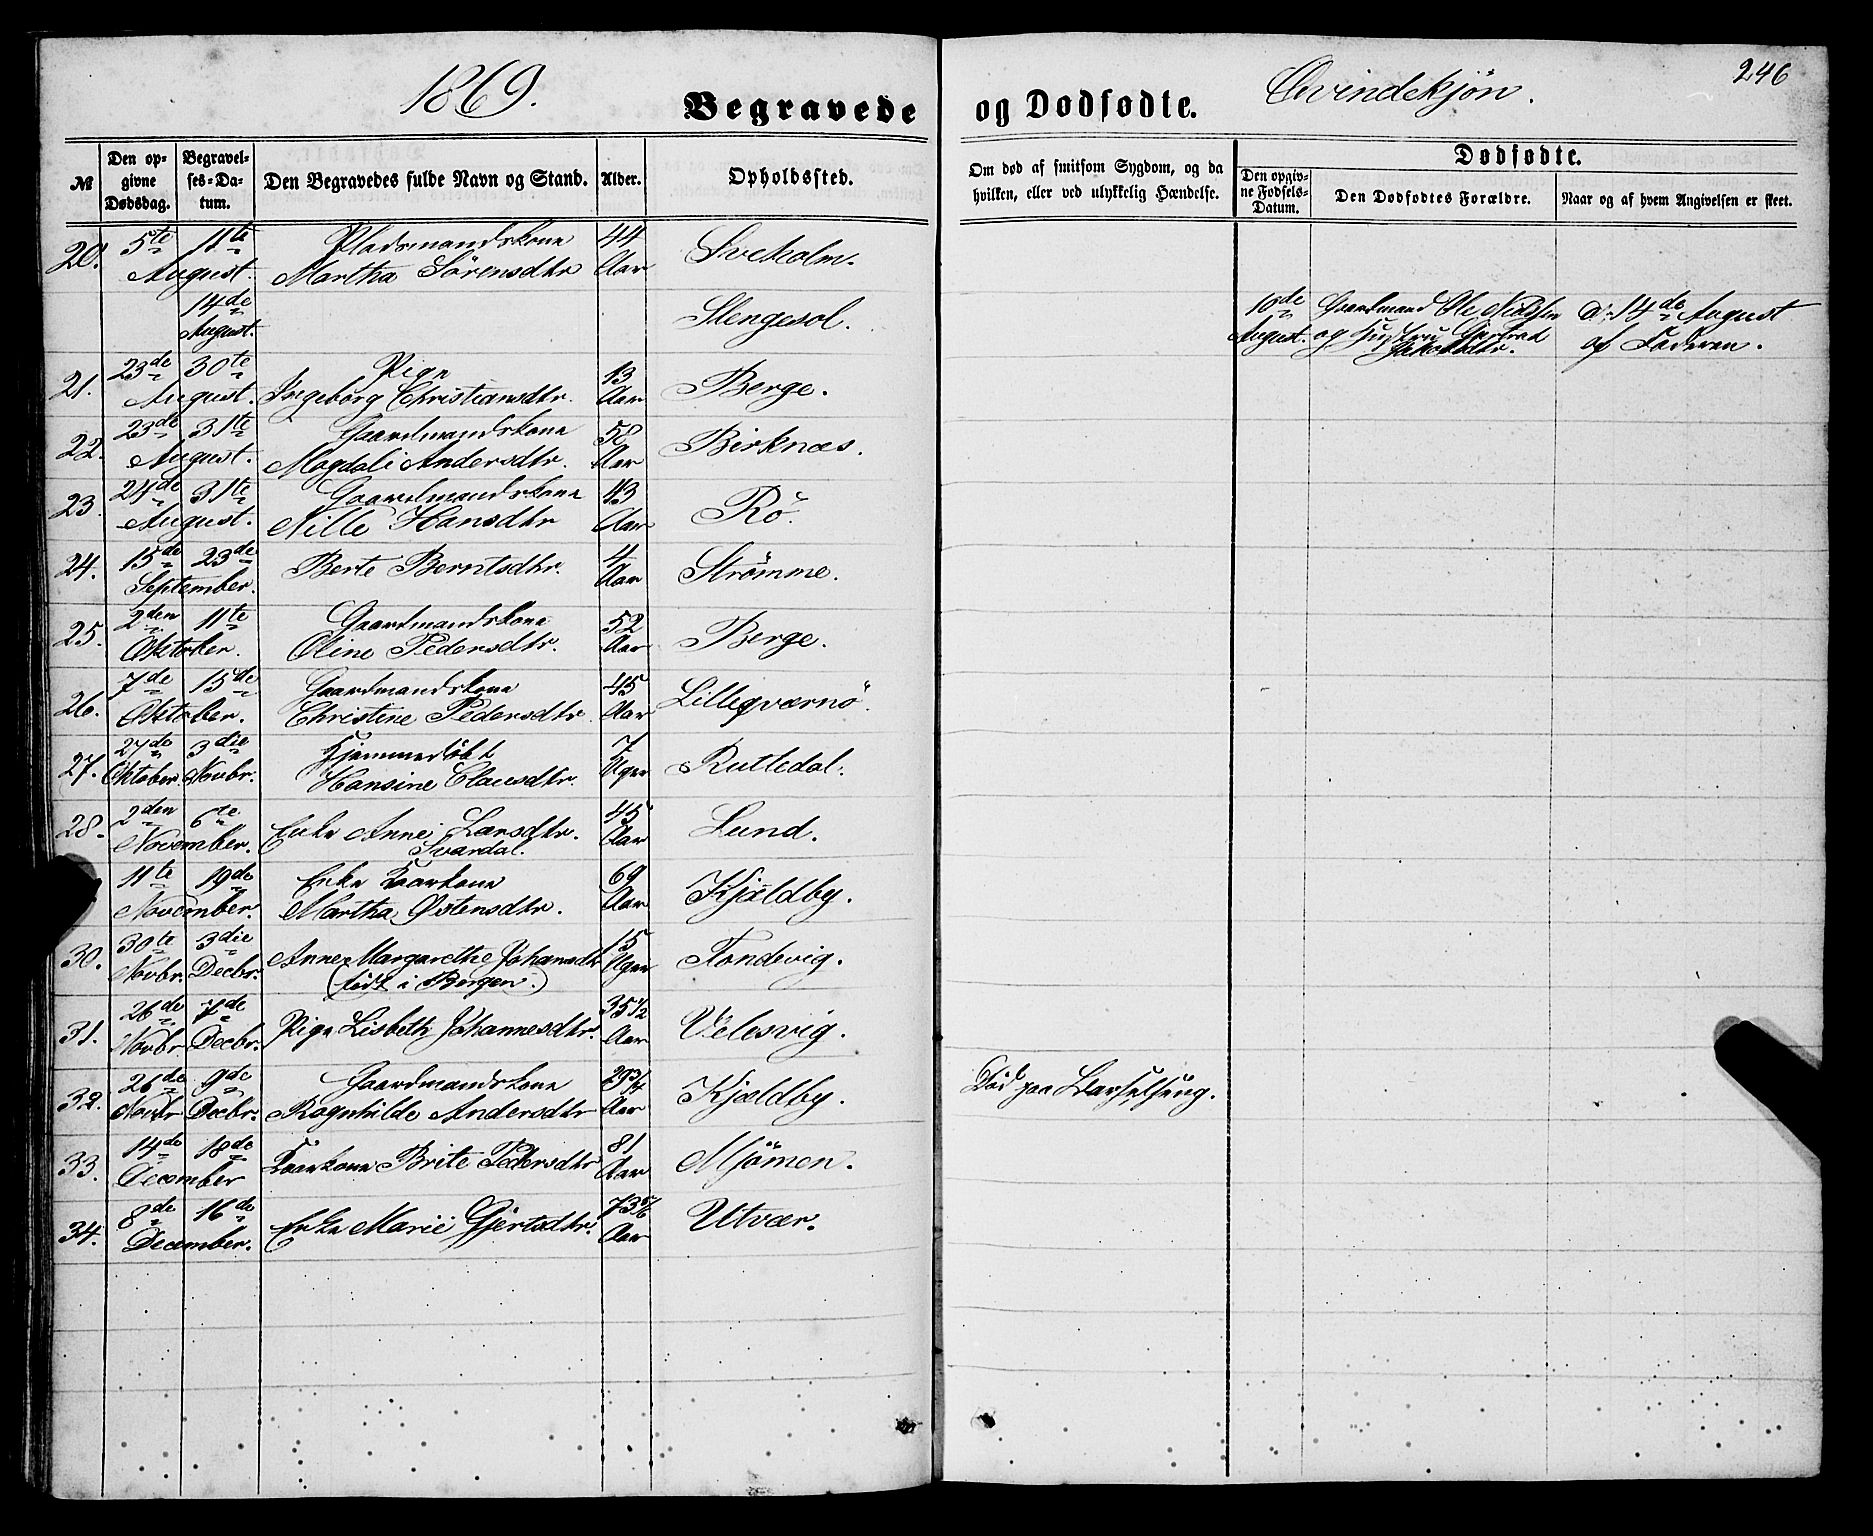 1869.
Begravede og Dødfødte.
Qvindekjøn.
246
№
Den opgivne Dødsdag.
Begravelses-Datum.
Den Begravedes fulde Navn og Stand.
Alder.
Opholdssted.
Om død af smitsom Sygdom, og da hvilken, eller ved ulykkelig Hændelse.
Dødfødte.
Den opgivne Fødsels-Datum.
Den Dødfødtes Forældre.
Naar og af hvem Angivelsen er skeet.
20. 5te 11te Pladsmandskone 44
August. Martha Sørensdtr Aar
14de Slengesol. 10de Gaardmand Ole Nielsen d. 14de August
August. August. og Hustru Gjertrud af Faderen.
Jakobsdtr.
21. 23de 30te Pige 13 Berge.
August. Ingeborg Christiansdtr. Aar
22. 23de 31te Gaardmandskone 58 Birknæs.
August. Magdali Andersdtr. Aar
23. 24de 31te Gaardmandskone 43 Rö.
August. Nille Hansdtr Aar
24. 15de 23de Berte Berntsdtr. 4 Strömme.
September. Aar
25. 2den 11te Gaardmandskone 52 Berge.
Oktober. Oline Pedersdtr. Aar
26. 7de 15de Gaardmandskone 45 Lilleqværnö.
Oktober. Christine Pedersdtr. Aar
27. 27de 3die Hjemmedöbt 7 Rutledal.
Oktober. Novbr. Hansine Clausdtr. Uger
28. 2den 6te Enke Anne Larsdtr. 45 Lund.
November. Svardal. Aar
11te 19de Enke Kaarkone 69 Kjældby.
November. Martha Østensdtr. Aar
30. 30te 3die Anne Margarethe Johannsdtr 15 Tondevig.
Novbr. Decbr. (födt i Bergen.) Uger
31. 26de 7de Pige Lisbeth Johannesdtr. 35 1/2 Velesvig.
Novbr Decbr. Aar
32. 26de 9de Gaardmandskone 29 3/4 Kjældby. Död paa Barselseng.
Novbr Decbr. Ragnhilde Andersdtr Aar
33. 14de 18de Kaarkone Brite Pedersdtr 81 Mjömen.
December Aar
34. 8de 16de Enke Marie Gjertsdtr. 73 5/6 Utvær.
December. Aar